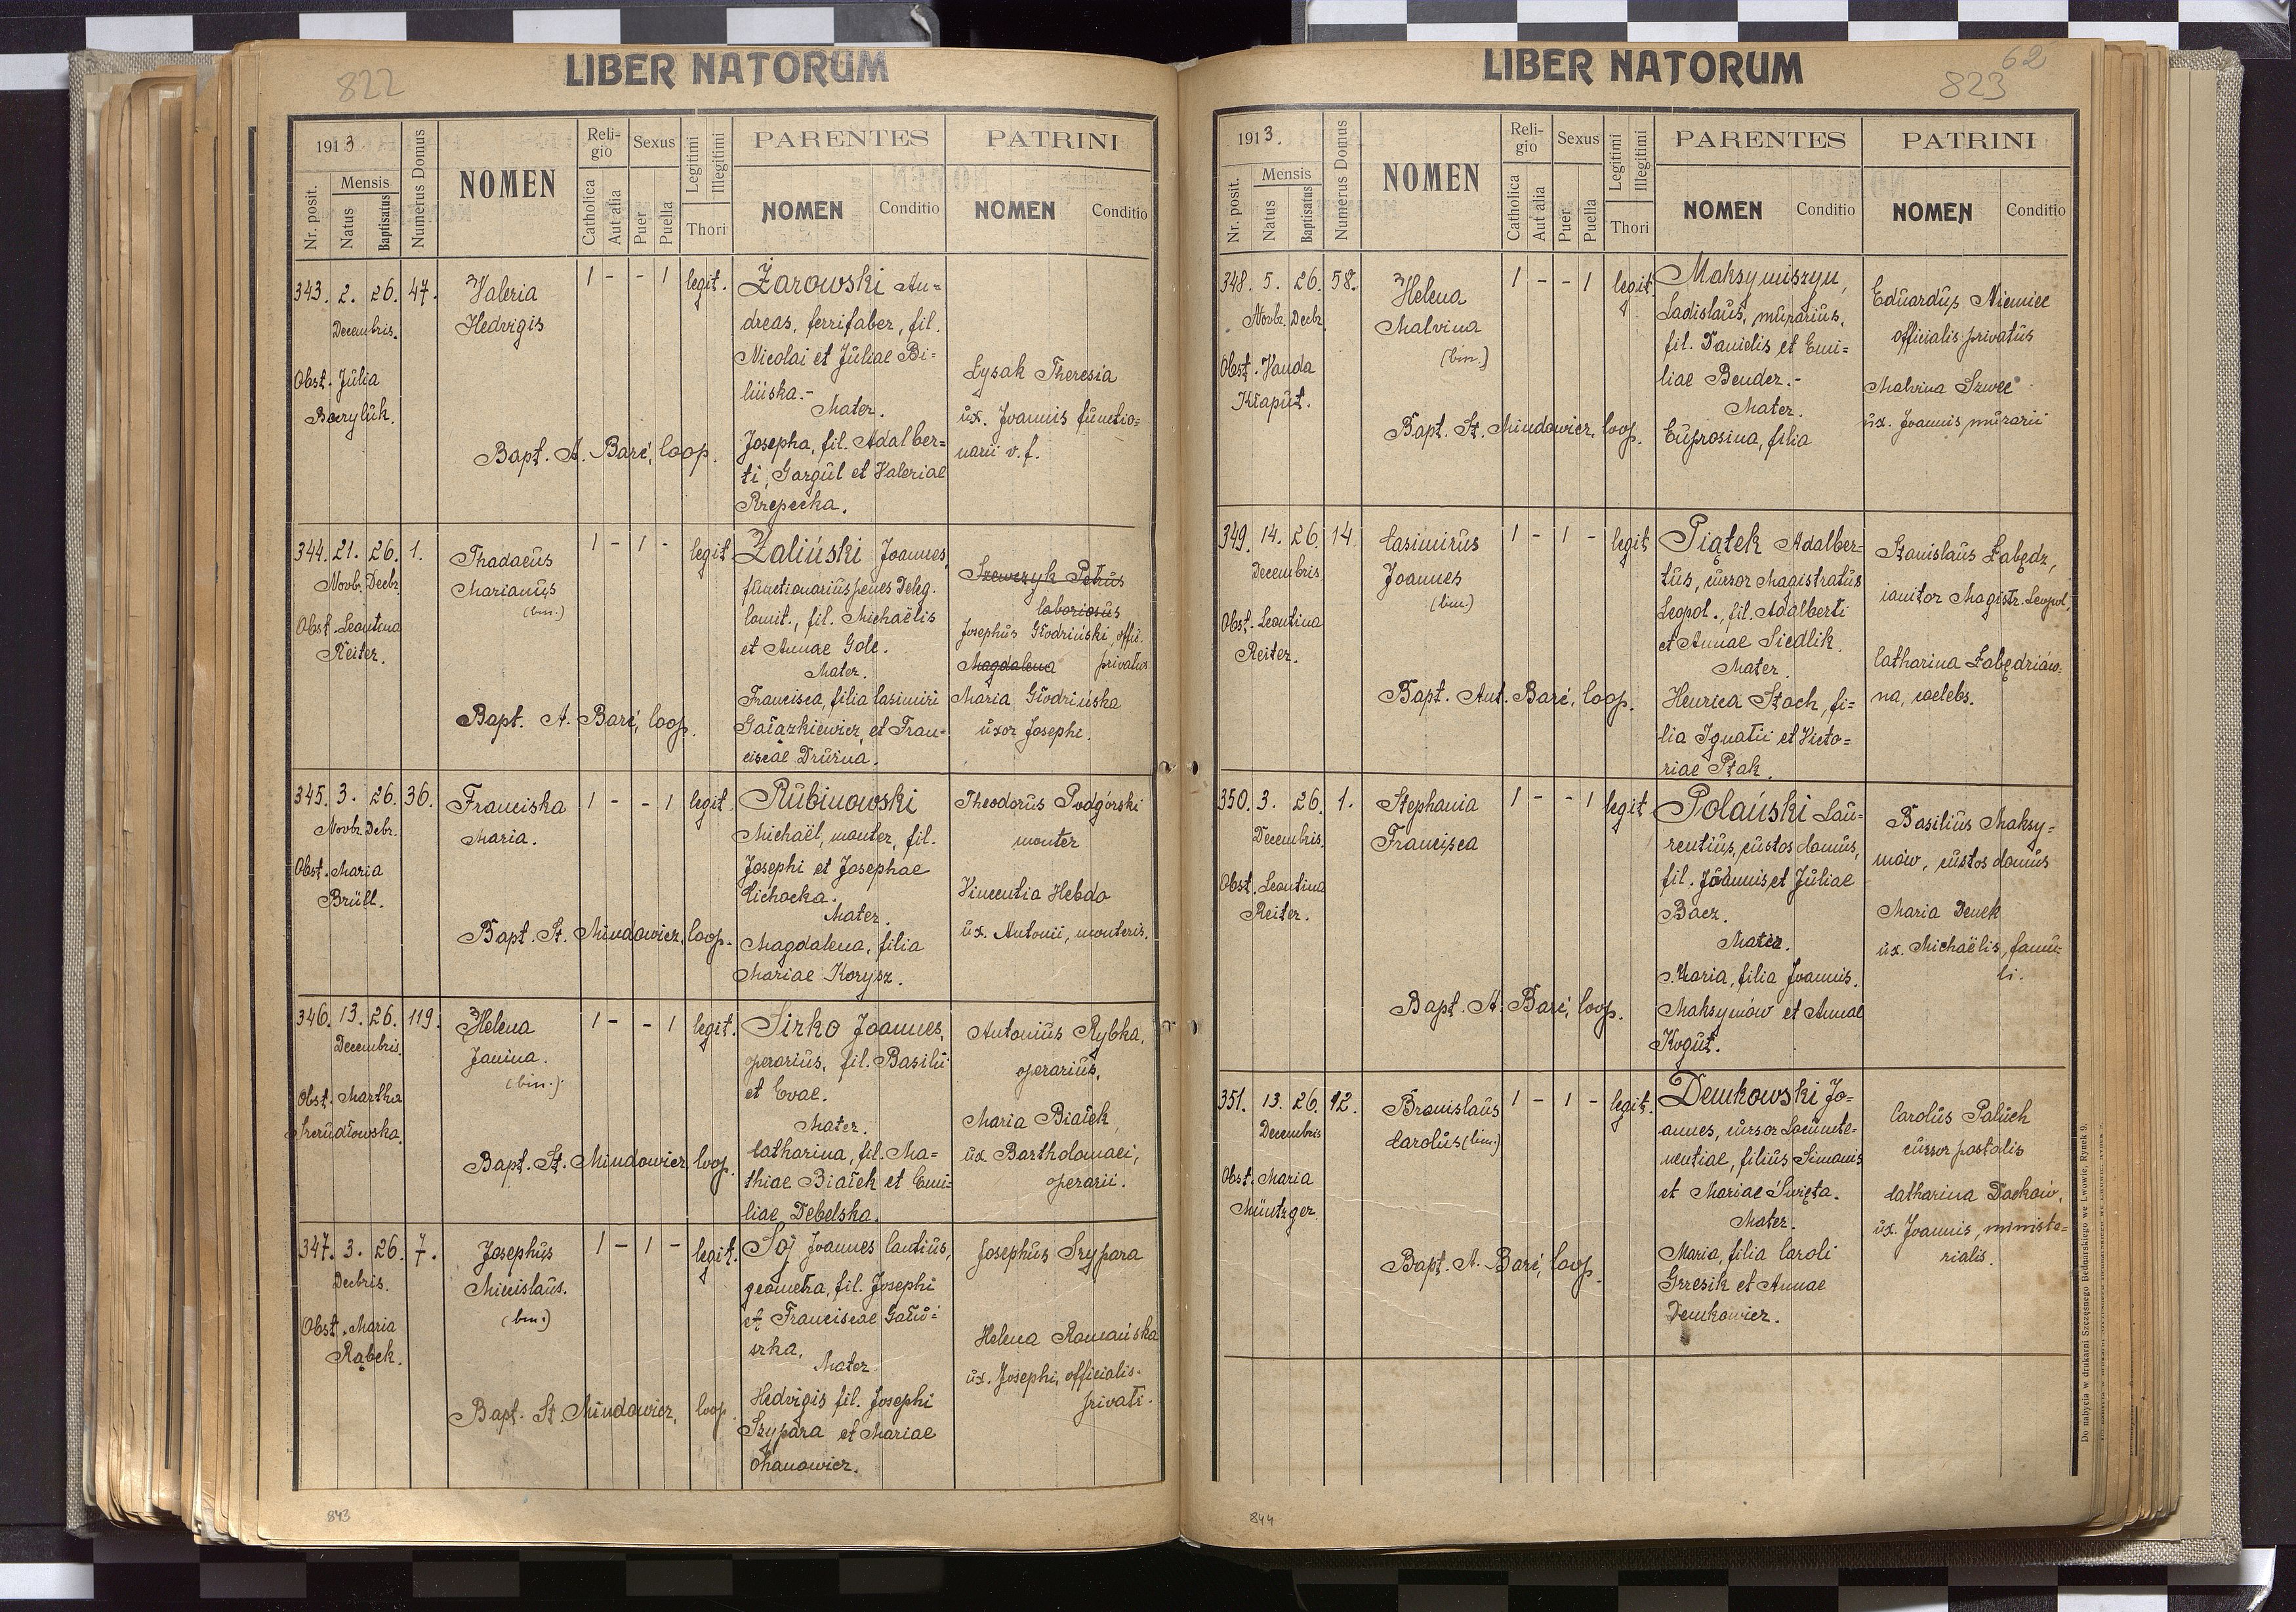 822
LIBER NATORUM
1913
Nr. posit.
Mensis
Natus
Baptisatus
Numerus Domus
NOMEN
Religio
Catholica
Aut alia
Sexus
Puer
Puella
Legitimi
Illegitimi
Thori
PARENTES
NOMEN
Conditio
PATRINI
NOMEN
Conditio
343. 2. 26. 47.
Decembris.
Obst. Julia
Valeria
Hedvigis
Bapt. A. Baré, coop.
1 - - 1 legit.
Żarowski An=
dreas, ferrifaber, fil.
Nicolai et Juliae Bi=
lińska.-
Mater.
Josepha, fil. Adalber=
ti, Gargul et Valeriae
Rzepecka.
Łysak Theresia
ux. Joannis functio=
narii v. f.
344. 21. 26. 1.
Novb. Decbr.
Obst. Leontina
Reiter.
Thadaeus
Marianus
(bin.)
Bapt. A. Baré, coop.
1 - 1 - legit
Zaliński Joannes,
functionarius penes Deleg.
Comit., fil. Michaëlis
et Annae Gole.
Mater.
Francisca, filia Casimiri
Gałązkiewicz et Fran=
ciscae Druzna.
Szewczyk Petrus
laboriosus
Josephus Głodziński, offic.
Magdalena privatus
Maria Głodzińska
uxor Josephi.
345. 3. 26. 36.
Novbr. Debr.
Obst. Maria
Brüll.
Franciska
Maria.
Bapt. St. Mindowicz, coop.
1 - - 1 legit
Rubinowski
Michaël, monter, fil.
Josephi et Josephae
Cichocka.
Mater.
Magdalena, filia
Mariae Korysz.
Theodorus Podgórski
monter
Vincentia Hebda
ux. Antonii, monteris.
346. 13. 26. 119.
Decembris.
Obst. Martha
Szrudłowska.
Helena
Janina.
(bin.)
Bapt. St. Mindowicz, coop.
1 - - 1 legit.
Sirko Joannes,
operarius, fil. Basilii
et Evae.
Mater.
Catharina, fil. Ma=
thiae Białek et Emi=
liae Debelska.
Antonius Rybka,
operarius,
Maria Białek,
ux. Bartholomaei,
operarii.
347. 3. 26. 7.
Decbris.
Obst. Maria
Rąbek.
Josephus
Miecislaus.
(bin.)
Bapt. St. Mindowicz, coop.
1 - 1 - legit.
Soj Joannes Cantius,
geometra, fil. Josephi
et Franciscae
Mater.
Hedvigis fil. Josephi
Szypara et Mariae
Ohanowicz.
Josephus Szypara
Helena Romańska
ux. Josephi, officialis
privati.
843
62
823
LIBER NATORUM
1913.
Nr. posit.
Mensis
Natus
Baptisatus
Numerus Domus
NOMEN
Religio
Catholica
Aut alia
Sexus
Puer
Puella
Legitimi
Illegitimi
Thori
PARENTES
NOMEN
Conditio
PATRINI
NOMEN
Conditio
348. 5. 26. 58.
Novbr. Decbr.
Obst. Vanda
Kłaput.
Helena
Malvina
(bin.)
Bapt. St. Mindowicz, coop.
1 - - 1 legit.
Maksymiszyn,
Ladislaus, murarius,
fil. Danielis et Emi=
liae Bender.-
Mater.
Euprosina, filia
Eduardus Niemiec
officialis privatus
Malvina Szwec
ux. Joannis murarii
349. 14. 26. 14
Decembris
Obst. Leontina
Reiter.
Casimirus
Joannes
(bin.)
Bapt. Ant. Baré, coop.
1 - 1 - legit
Piątek Adalber=
tus, cursor Magistratus
Leopol., fil. Adalberti
et Annae Siedlik.
Mater.
Henrica Stach, fi=
lia Ignatii et Victo=
riae Ptak.
Stanislaus Łabędz,
ianitor Magistr. Leopol,
Catharina Łabędziów=
na, caelebs.
350. 3. 26. 1.
Decembris.
Obst. Leontina
Reiter.
Stephania
Francisca
Bapt. A. Baré, coop.
1 - - 1 legit
Polański Lau=
rentius, custos domus,
fil. Joannis et Juliae
Bacz.
Mater.
Maria, filia Joannis.
Maksymów et Annae
Kogut.
Basilius Maksy=
mów, custos domus
Maria Denek
ux. Michaëlis, famu=
li.
351. 13. 26. 12.
Decembris
Obst. Maria
Müntzger.
Bronislaus
Carolus (bin.)
Bapt. A. Baré, coop.
1 - 1 - legit.
Demkowski Jo=
annes, cursor Locumte=
nentiae, filius Simonis
et Mariae Święta.
Mater.
Maria, filia Caroli
Grzesik et Annae
Demkowicz.
Carolus Paluch
cursor postalis
Catharina Dacków,
ux. Joannis, ministe=
rialis.
Do nabycia w drukarni Szczęsnego Bednarskiego we Lwowie, Rynek 9.
844